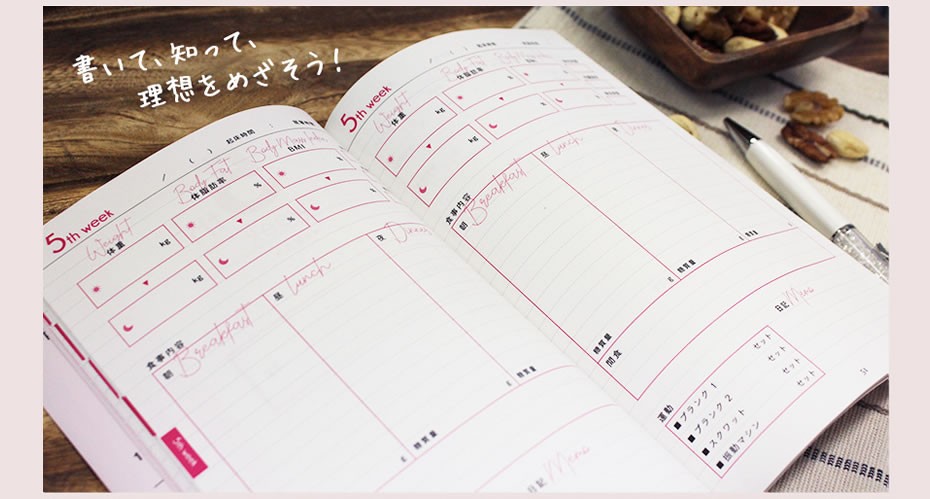 書いて、知って、
理想をめざそう!
5th week
( ) 起床時間 :
Weight
体重
Body Fat
体脂肪率
BMI
kg
%
kg
%
食事内容
朝
Breakfast
昼
Lunch
夜
Dinner
g
糖質量
g
糖質量
日記
Memo
5th week
5th week
Weight
体重
Body Fat
体脂肪率
kg
%
kg
%
食事内容
朝
Breakfast
昼
Lunch
Dinner
g
糖質量
g
糖質量
間食
日記
Memo
運動
■プランク 1 セット
■プランク 2 セット
■スクワット セット
■振動マシン セット
51